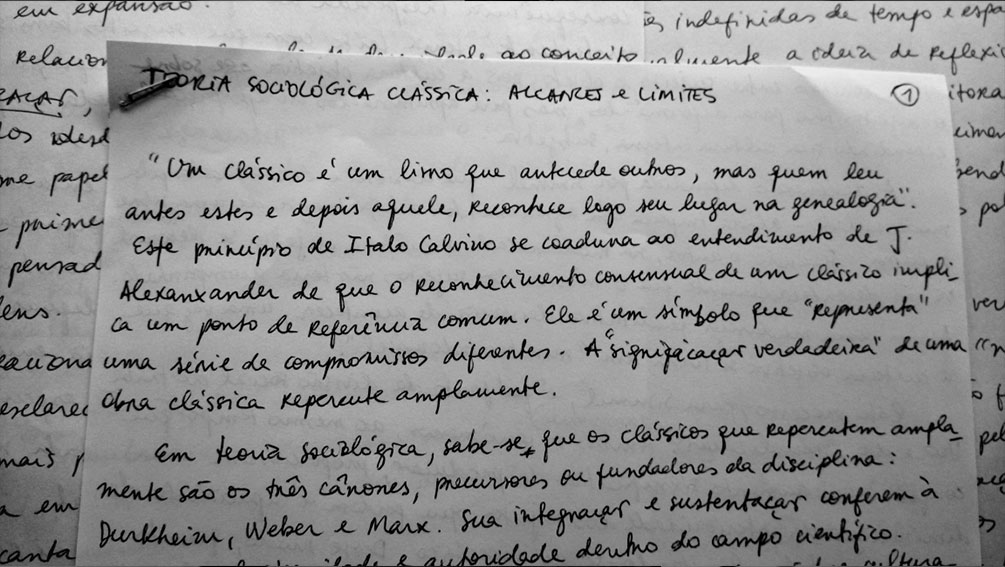 em expansão.
relacion
ao conceito
indefinidas de tempo e espa
a ideia de reflexi
TEORIA SOCIOLÓGICA CLÁSSICA: ALCANCES e LIMITES
1
"Um clássico é um livro que antecede outros, mas quem leu
antes estes e depois aquele, reconhece logo seu lugar na genealogia".
Este princípio de Italo Calvino se coaduna ao entendimento de J.
Alexanxander de que o reconhecimento consensual de um clássico impli-
ca um ponto de referência comum. Ele é um símbolo que "representa"
uma série de compromissos diferentes. A "significaçar verdadeira" de uma
obra clássica repercute amplamente.
Em teoria sociológica, sabe-se, que os clássicos que repercutem ampla-
mente são os três cânones, precursores ou fundadores da disciplina:
Durkheim, Weber e Marx. Sua integraçar e sustentaçar conferem à
e autoridade dentro do campo científico.
me papel
prime
pensad
lens.
eaciona
esclarec
mais p
a em
canta
itora
cimen
cultura